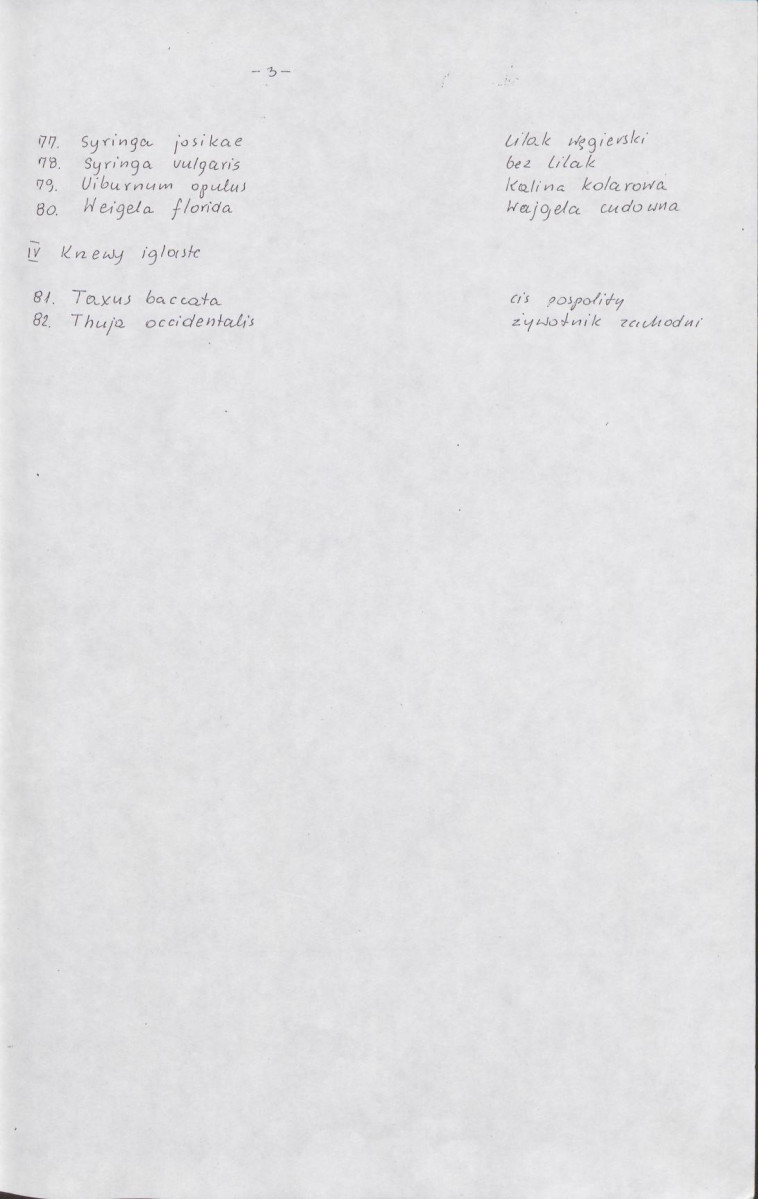 - 3 -
77. Syringa josikae Lilak węgierski
78. Syringa vulgaris bez lilak
79. Viburnum opulus Kalina kolarowa
80. Weigela florida Wajgela cudowna
IV Krzewy iglaste
81. Taxus baccata cis pospolity
82. Thuja occidentalis żywotnik zachodni